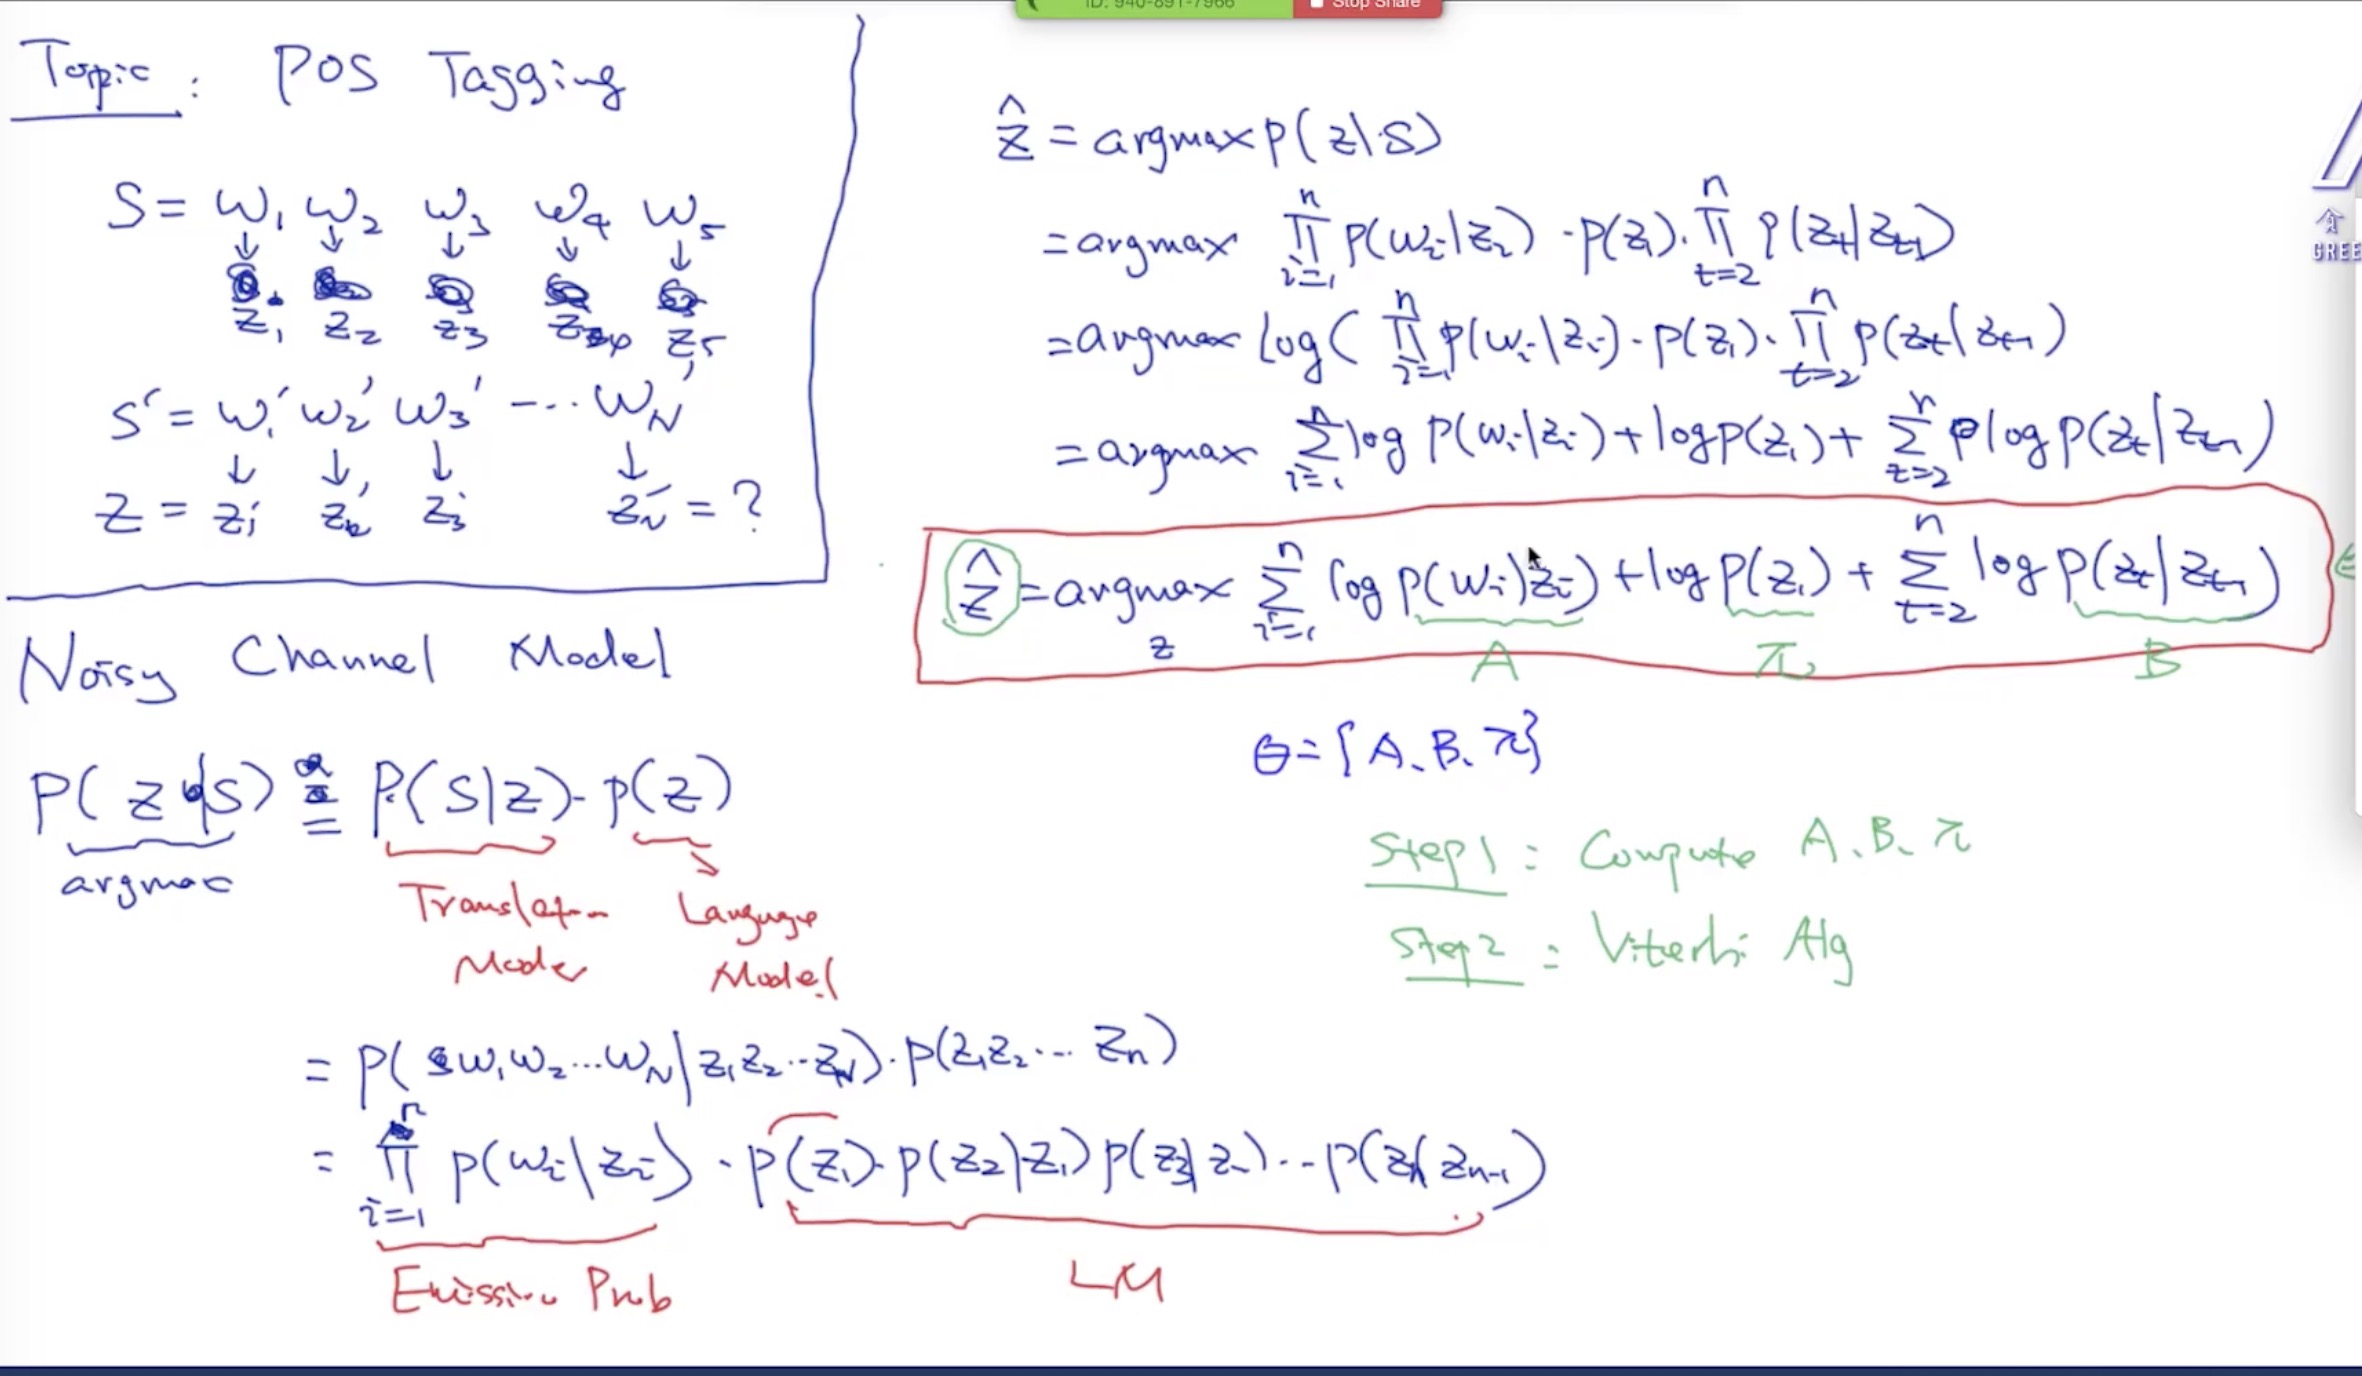 ID: 940-891-7966 Stop Share
Topic: POS Tagging
S = w₁ w₂ w₃ w₄ w₅
↓ ↓ ↓ ↓ ↓
z₁ z₂ z₃ z₄ z₅
S' = w₁' w₂' w₃' -... w_N'
↓ ↓ ↓ ↓
Z = z₁' z₂' z₃' z_N' = ?
Noisy Channel Model
P(z|S) ∝ P(S|z)·p(z)
argmax
Translation Model
Language Model
= P(w₁w₂...w_N|z₁z₂...z_N)·p(z₁z₂... z_n)
= ∏_{i=1}^{n} p(w_i|z_i) · p(z₁)·p(z₂|z₁)p(z₃|z₂)...p(z_n|z_{n-1})
Emission Prob
LM
ẑ = argmax p(z|S)
= argmax ∏_{i=1}^{n} p(w_i|z_i) · p(z₁)·∏_{t=2}^{n} p(z_t|z_{t-1})
= argmax log( ∏_{i=1}^{n} p(w_i|z_i)·p(z₁)·∏_{t=2}^{n} p(z_t|z_{t-1})
= argmax ∑_{i=1}^{n} log p(w_i|z_i) + log p(z₁) + ∑_{t=2}^{n} log p(z_t|z_{t-1})
ẑ = argmax_z ∑_{i=1}^{n} log p(w_i|z_i) + log p(z₁) + ∑_{t=2}^{n} log p(z_t|z_{t-1})
A π B
θ = {A、B、π}
Step1: Compute A、B、π
Step2: Viterbi Alg
GREE